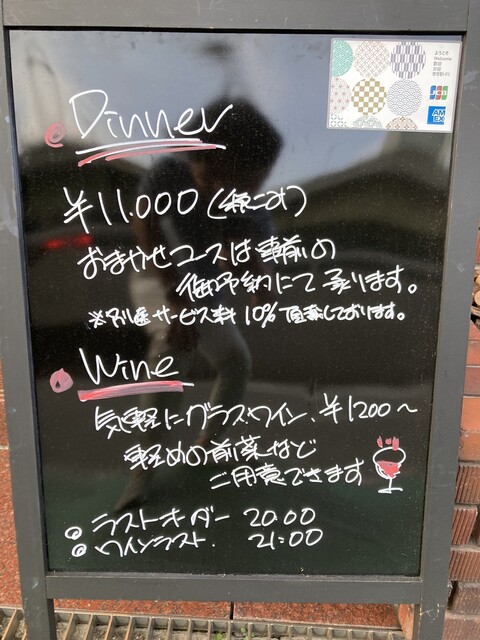 ようこそ
Welcome
JCB
AM
EX
Dinner
¥11.000(税こみ)
おまかせコースは事前の
御予約にて承ります。
※別途サービス料10%頂戴しております。
Wine
気軽にグラスワイン、¥1200〜
軽めの前菜など
ご用意できます
◎ラストオーダー 20:00
◎ワインラスト. 21:00